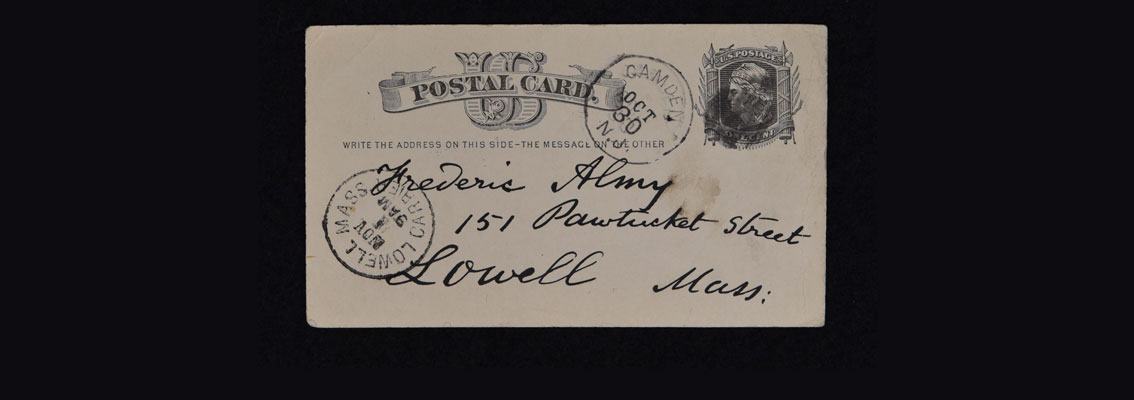 US
POSTAL CARD.
U.S. POSTAGE
ONE CENT
CAMDEN
OCT
30
N.J.
WRITE THE ADDRESS ON THIS SIDE-THE MESSAGE ON THE OTHER
Frederic Almy
151 Pawtucket Street
Lowell Mass:
LOWELL MASS.
CARRIER
NOV
1
9AM